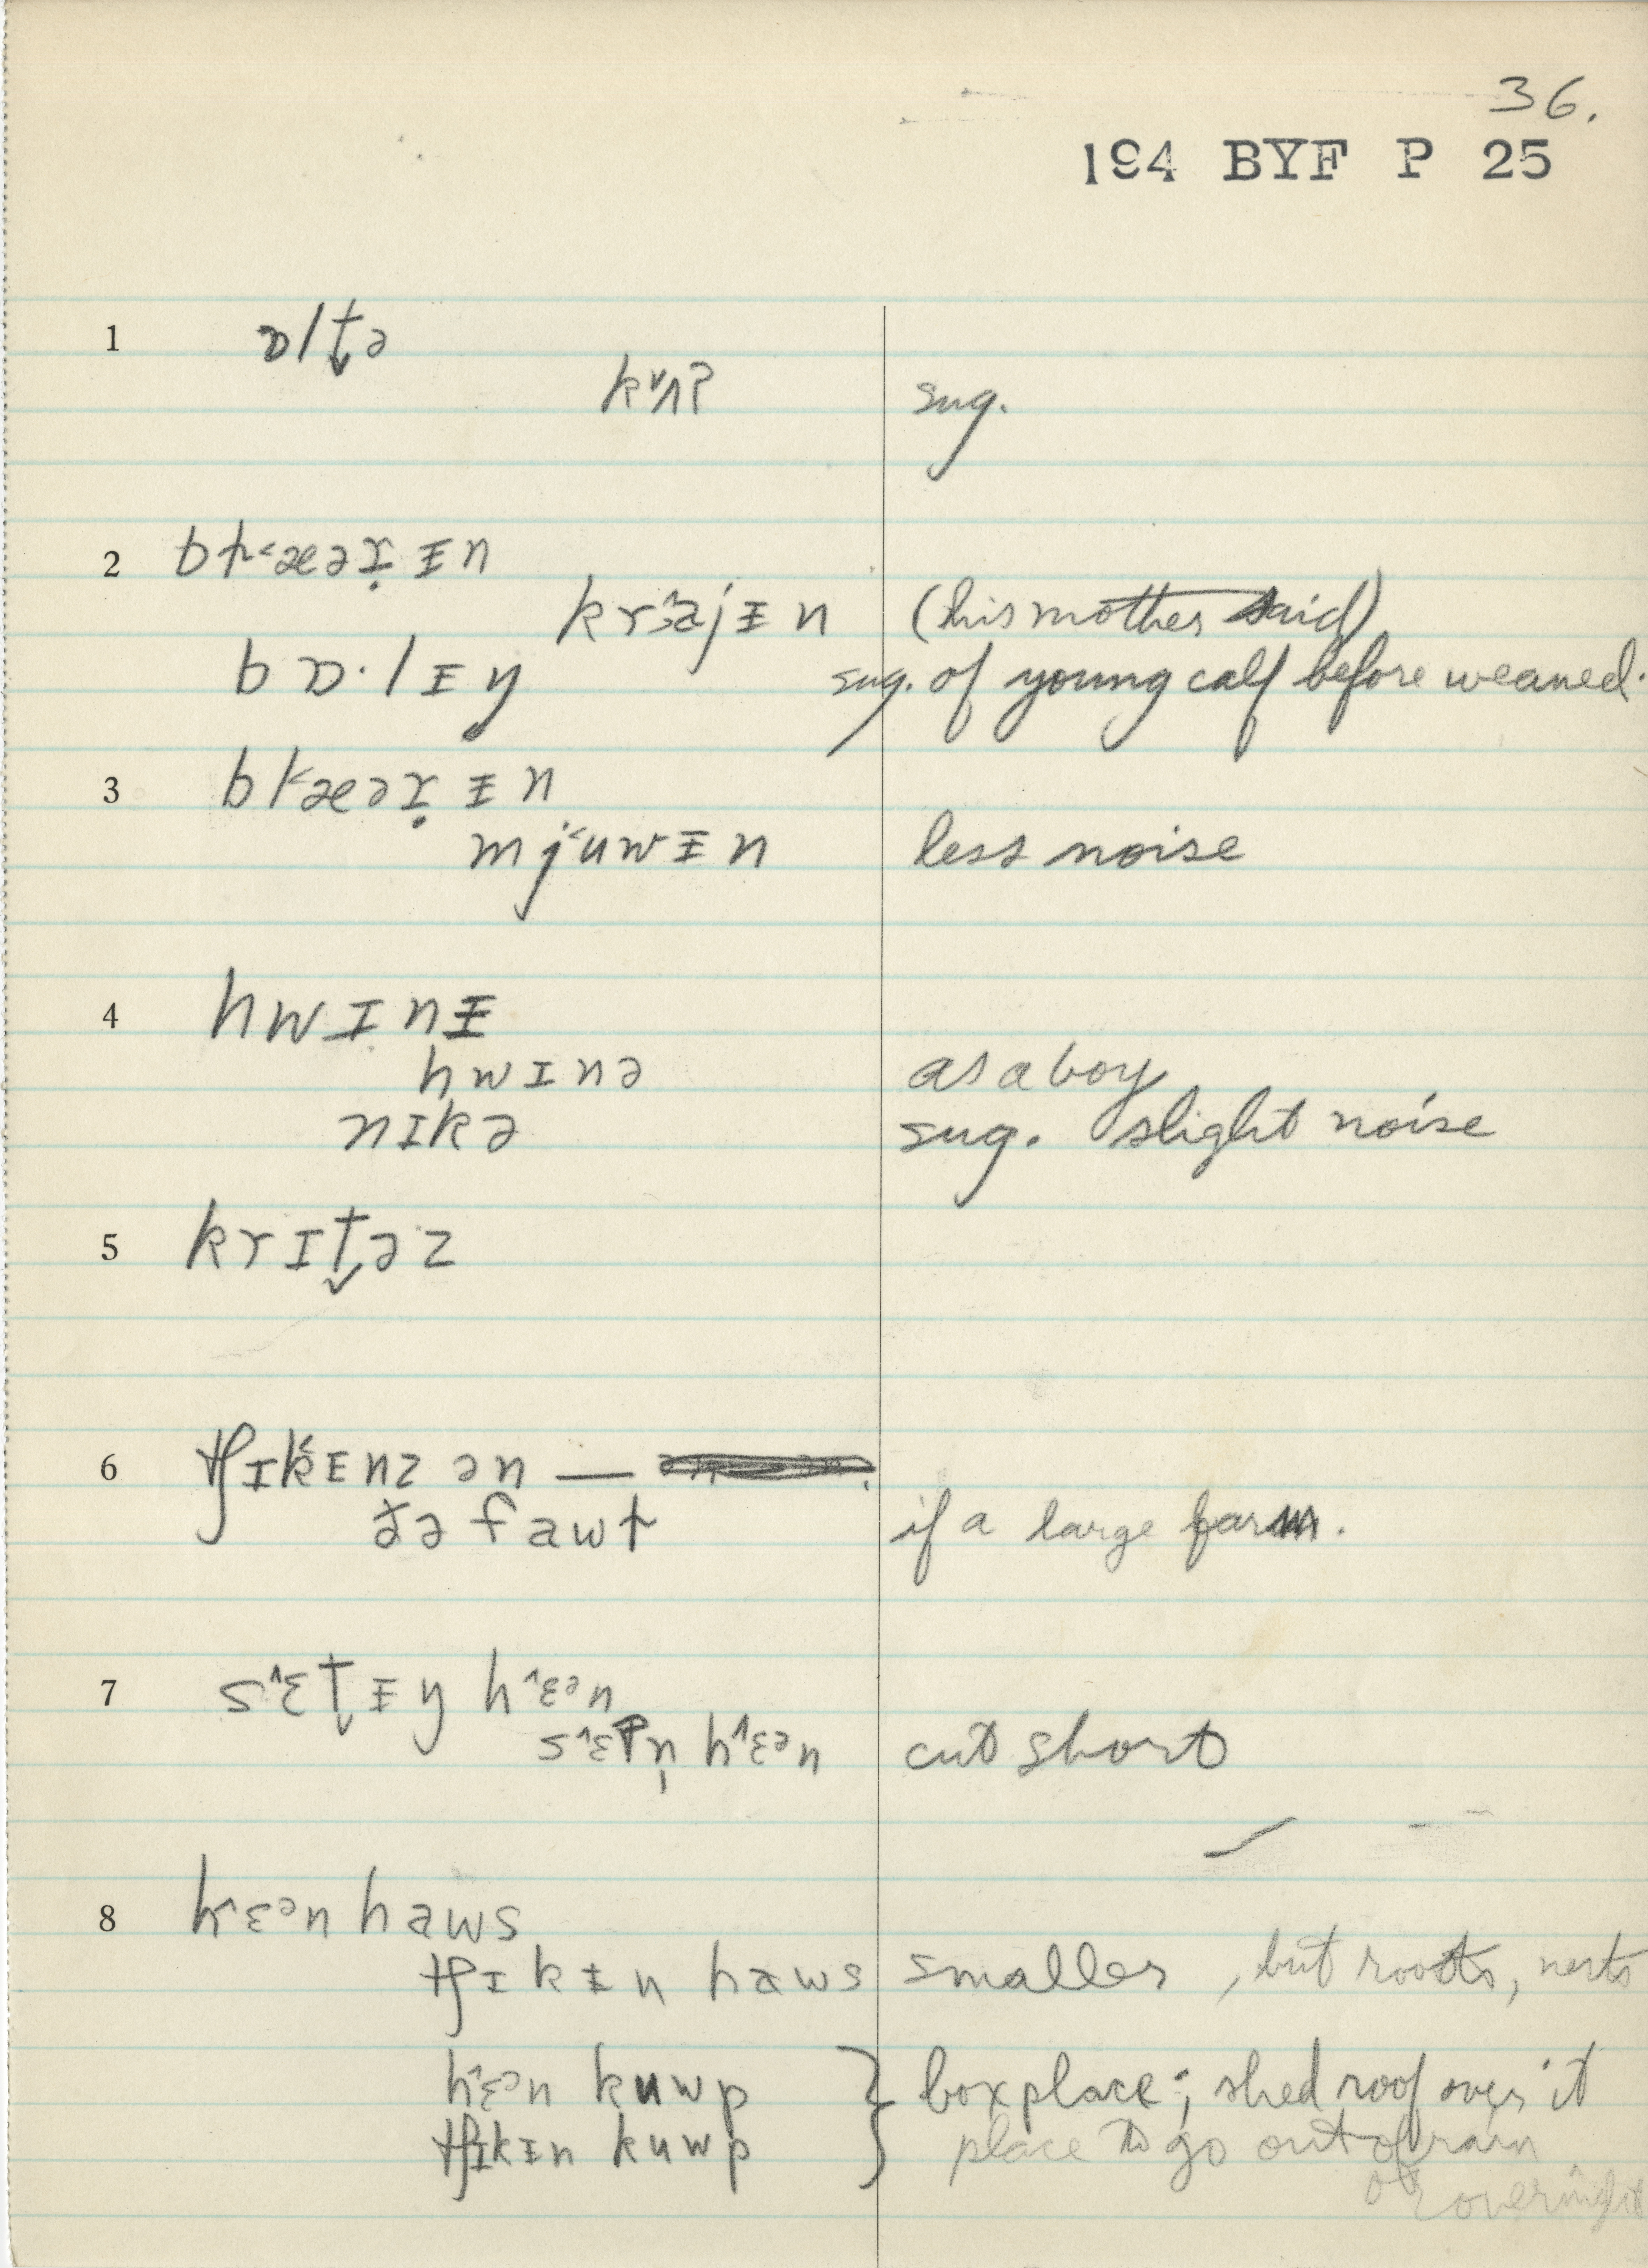 36.
194 BYF P 25
1 ɒlt̬ə
kʌ̌ʔ sug.
2 bƚ˂æəɪ̣ ᵻn
krɜ˄ajᵻn (his mother said)
bɒ·lᵻŋ sug. of young calf before weaned.
3 b˂æəɪ̣ ᵻn
mj˂uwᵻn less noise
4 hwɪnᵻ
hwɪnə as a boy
nɪkə sug. slight noise
5 krɪt̬əz
6 tʃɪk˂ᵻnz ən —
ðə fawt if a large farm.
7 s˄ɛt̬ᵻŋ h˄ɛᵊn
s˄ɛʔn̩ h˄ɛᵊn cut short
8 h˄ɛᵊn haws
tʃɪkᵻn haws smaller, but roosts, nests
h˄ɛᵊn kuwp } box place; shed roof over it
tʃɪkᵻn kuwp } place to go out of rain
or overnight